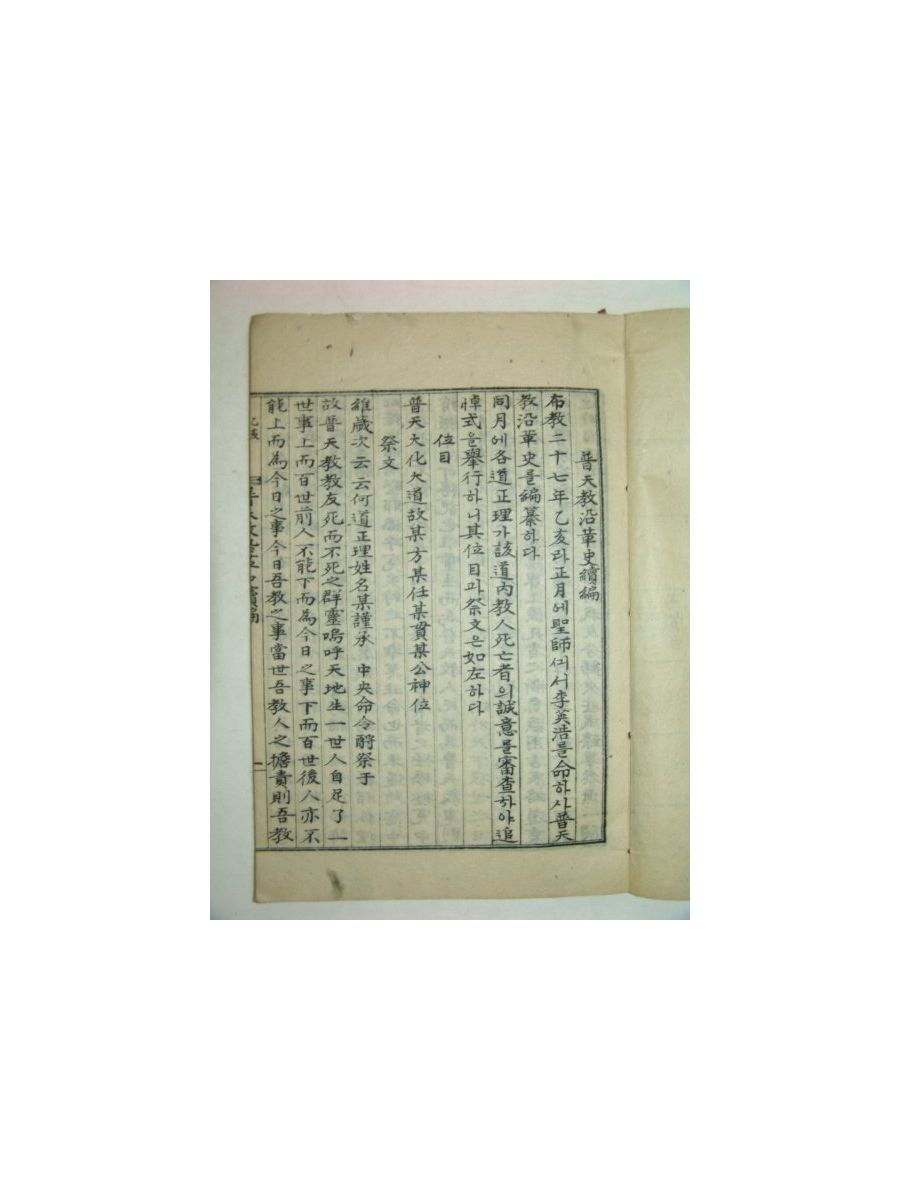 普天教沿革史續編
布教二十七年乙亥라正月에聖師께서李英浩를命하사普天
教沿革史를編纂하다
同月에各道正理가該道內教人死亡者의誠意를審查하야追
悼式을舉行하니其位目과祭文은如左하다
位目
普天大化大道故某方某任某貫某公神位
祭文
維歲次云云何道正理姓名某謹承 中央命令酹祭于
故普天教教友死而不死之群靈嗚呼天地生一世人自足了一
世事上而百世前人不能下而為今日之事下而百世後人亦不
能上而為今日之事今日吾教之事當世吾教人之擔責則吾教
乙亥
一